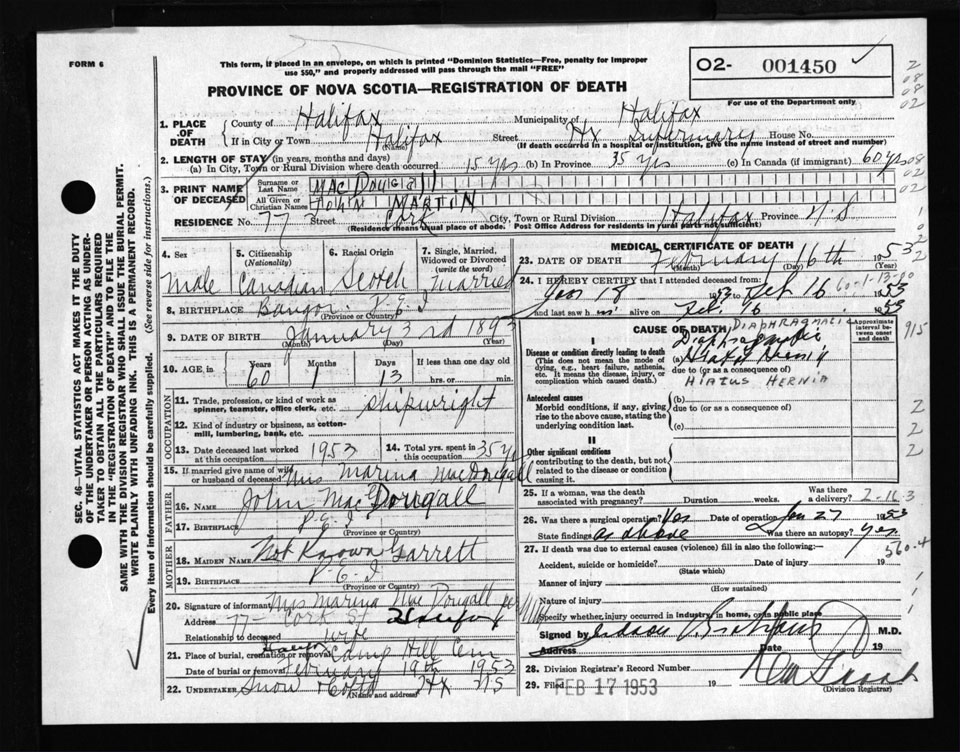 FORM 6
This form, if placed in an envelope, on which is printed "Dominion Statistics—Free, penalty for improper
use $50," and properly addressed will pass through the mail "FREE"
02- 001450
For use of the Department only
PROVINCE OF NOVA SCOTIA—REGISTRATION OF DEATH
1. PLACE OF DEATH County of Halifax Municipality of Halifax
If in City or Town Halifax (Name) Street Hx Infirmary House No.
(If death occurred in a hospital or institution, give the name instead of street and number)
2. LENGTH OF STAY (in years, months and days)
(a) In City, Town or Rural Division where death occurred 15 yrs (b) In Province 35 yrs (c) In Canada (if immigrant) 60 yrs
3. PRINT NAME OF DECEASED
Surname or Last Name MacDougall
All Given or Christian Names John MARTIN
RESIDENCE No. 77 Street Cork City, Town or Rural Division Halifax Province N.S
(Residence means usual place of abode. Post Office Address for residents in rural parts not sufficient)
4. Sex Male
5. Citizenship (Nationality) Canadian
6. Racial Origin Scotch
7. Single, Married, Widowed or Divorced (write the word) Married
8. BIRTHPLACE Bangor P.E.I
(Province or Country)
9. DATE OF BIRTH January 3rd 1893
(Month) (Day) (Year)
10. AGE, in Years 60 Months 1 Days 13 If less than one day old hrs. or min.
OCCUPATION
11. Trade, profession, or kind of work as spinner, teamster, office clerk, etc. Shipwright
12. Kind of industry or business, as cotton-mill, lumbering, bank, etc.
13. Date deceased last worked at this occupation 1953
14. Total yrs. spent in this occupation 35 yrs
15. If married give name of wife or husband of deceased Mrs Marina MacDougall
FATHER
16. Name John MacDougall
17. Birthplace P.E.I
(Province or Country)
MOTHER
18. Maiden Name Not Known Garrett
19. Birthplace P.E.I
(Province or Country)
20. Signature of informant Mrs Marina MacDougall
Address 77 Cork St Halifax
Relationship to deceased wife
21. Place of burial, cremation or removal Camp Hill Cem
Date of burial or removal February 19th 1953
22. UNDERTAKER Snow Hx NS
(Name and address)
MEDICAL CERTIFICATE OF DEATH
23. DATE OF DEATH February 16th 1953
(Month) (Day) (Year)
24. I HEREBY CERTIFY that I attended deceased from:
Jan 18 1953 to Feb 16 1953
and last saw him alive on Feb. 16 1953
CAUSE OF DEATH
Approximate interval between onset and death
I
Disease or condition directly leading to death
(This does not mean the mode of dying, e.g., heart failure, asthenia, etc. It means the disease, injury, or complication which caused death.)
DIAPHRAGMATIC
(a) Hiatus Hernia
due to (or as a consequence of)
HIATUS HERNIA
Antecedent causes
Morbid conditions, if any, giving rise to the above cause, stating the underlying condition last.
(b)
due to (or as a consequence of)
(c)
II
Other significant conditions
contributing to the death, but not related to the disease or condition causing it.
25. If a woman, was the death associated with pregnancy? Duration weeks. Was there a delivery?
2-16-3
26. Was there a surgical operation? Yes Date of operation Jan 27 1953
State findings as above Was there an autopsy? Yes
560-4
27. If death was due to external causes (violence) fill in also the following:—
Accident, suicide or homicide? Date of injury 19
(State which)
Manner of injury
(How sustained)
Nature of injury
Specify whether injury occurred in industry, in home, or in public place
Signed by M.D.
Address Date 19
28. Division Registrar's Record Number
29. Filed FEB 17 1953 19
(Division Registrar)
SEC. 46—VITAL STATISTICS ACT MAKES IT THE DUTY
OF THE UNDERTAKER OR PERSON ACTING AS UNDERTAKER TO OBTAIN ALL THE PARTICULARS REQUIRED
IN THE "REGISTRATION OF DEATH" AND TO FILE THE
SAME WITH THE DIVISION REGISTRAR WHO SHALL ISSUE THE BURIAL PERMIT.
WRITE PLAINLY WITH UNFADING INK. THIS IS A PERMANENT RECORD.
Every item of information should be carefully supplied. (See reverse side for instructions.)